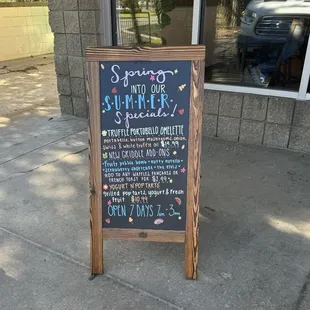 Spring
INTO OUR
S·U·M·M·E·R
Specials!
TRUFFLE PORTOBELLO OMELETTE
portabella, button mushrooms, onion,
swiss & white truffle oil $14.99
NEW GRIDDLE ADD-ONS
Fruity pebble bomb · nutty nutella
strawberry shortcake · the elvis
ADD TO ANY WAFFLES, PANCAKES OR
FRENCH TOAST FOR $2.99
YOGURT N' POP TARTS
grilled pop tarts, yogurt &
fruit $10.99
OPEN 7 DAYS 7AM-3PM